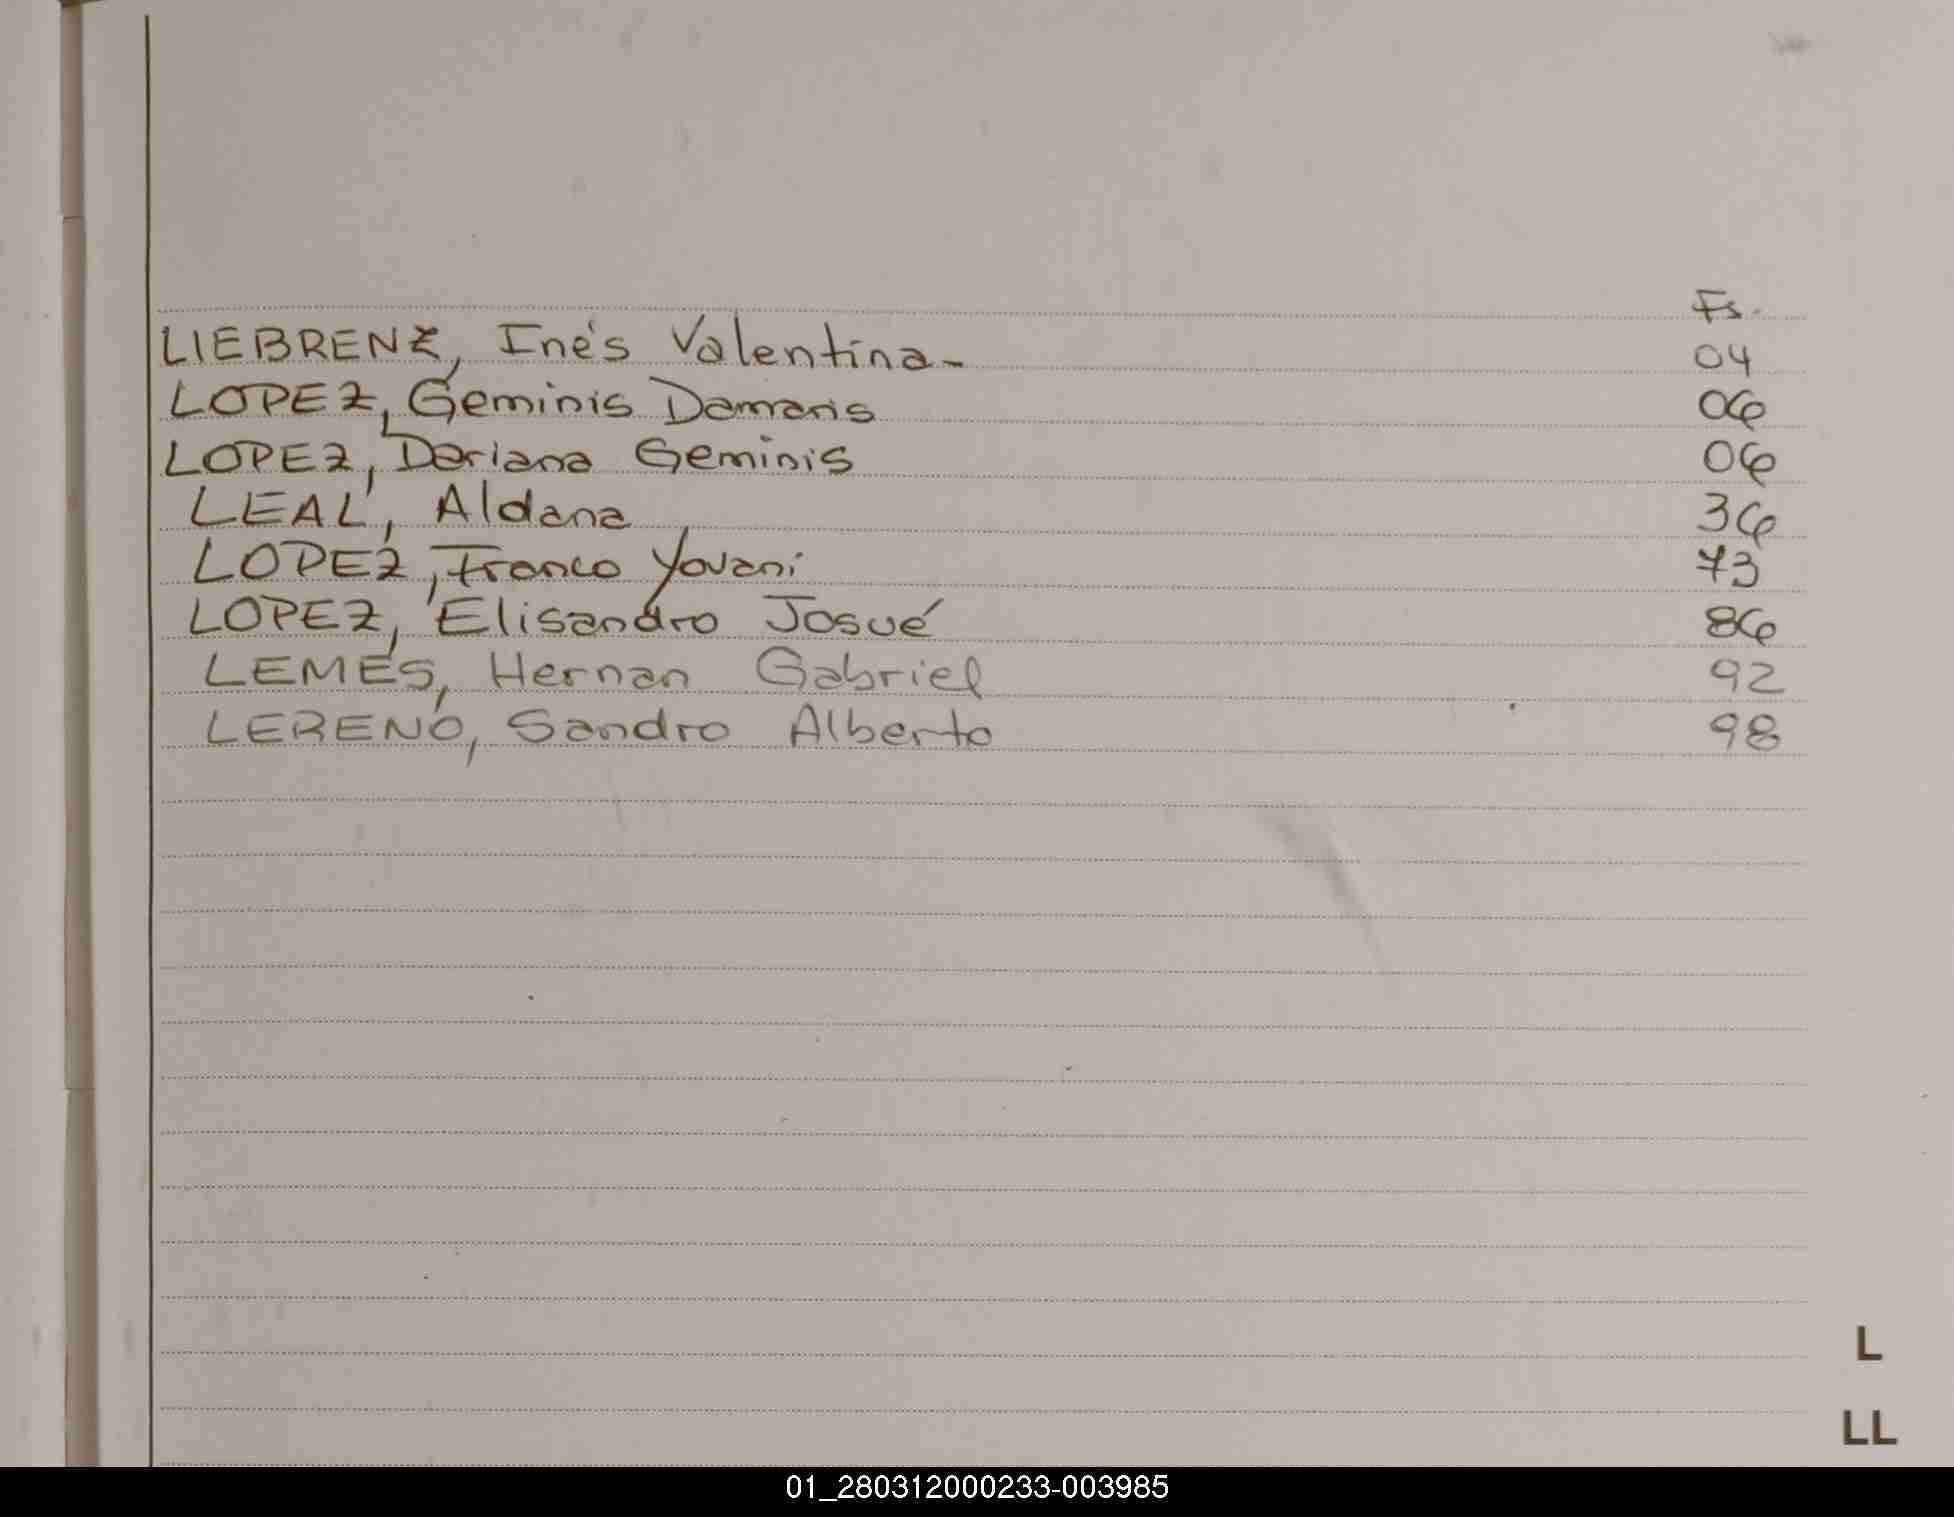 Fs.
LIEBRENZ, Inés Valentina- 04
LOPEZ, Geminis Damaris 06
LOPEZ, Dariana Geminis 06
LEAL, Aldana 36
LOPEZ, Franco Yovani 73
LOPEZ, Elisandro Josué 86
LEMES, Hernan Gabriel 92
LERENO, Sandro Alberto 98
L
LL
01_280312000233-003985